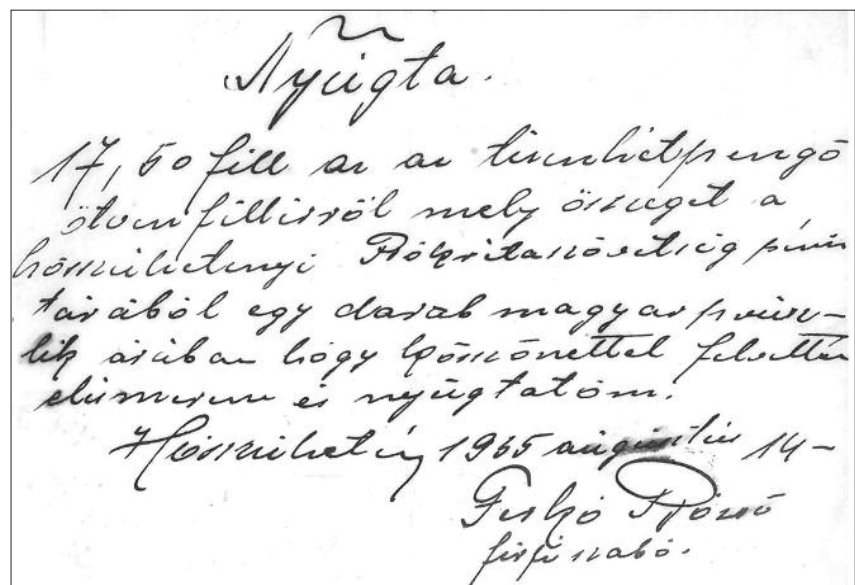 Nyúgta.
17,50 fill az az tizenhétpengő
ötven fillérről mely összeget a
hosszúhetényi Bokrétaszövetség pénz
tárából egy darab magyar prusz-
lik árában hogy köszönettel felvettem
elismerem és nyúgtatom.
Hosszúhetény 1935 augusztus 14-
Rózsó
férfi szabó.